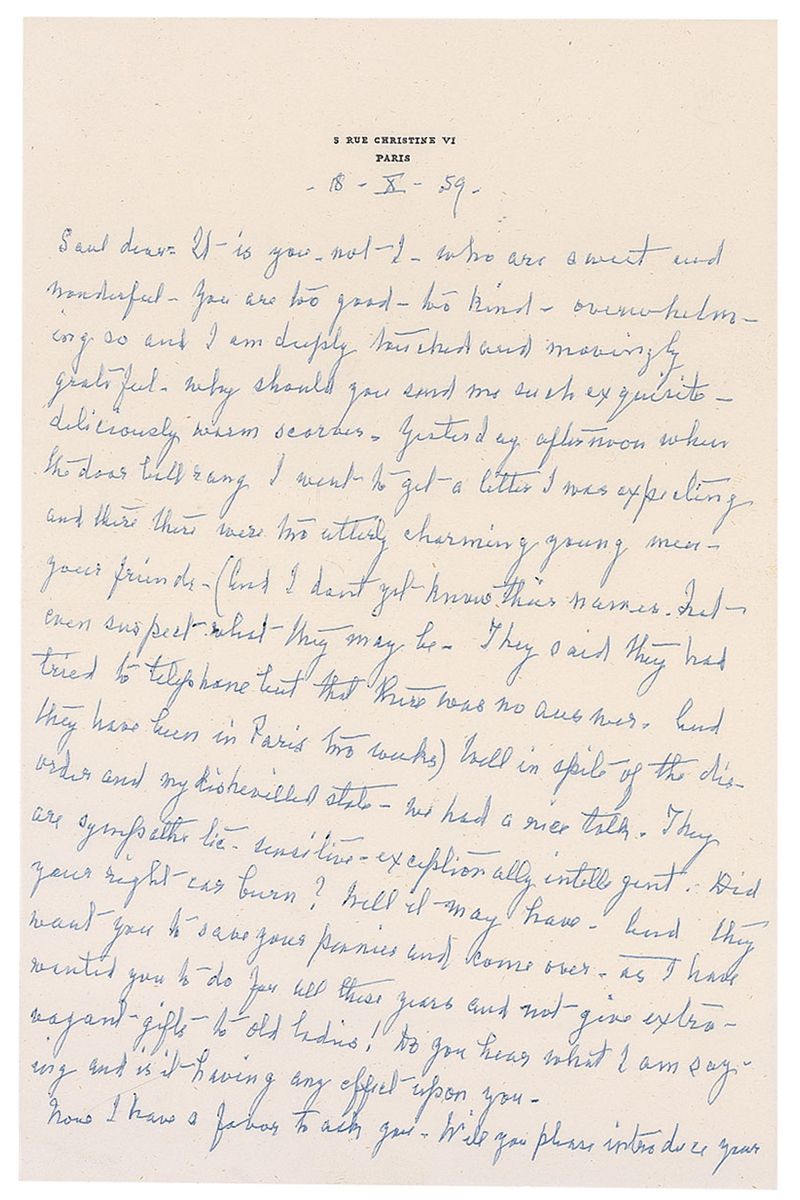 5 RUE CHRISTINE VI
PARIS
- 8 - X - 59 -
Saul dear - It is you - not I - who are sweet and
wonderful - You are too good - too kind - overwhelm-
ing so and I am deeply touched and movingly
grateful - why should you send me such exquisite -
deliciously warm scarves - Yesterday afternoon when
the door bell rang I went to get a letter I was expecting
and there there were two utterly charming young men -
your friends - (And I dont yet know their names. Not
even suspect what they may be - They said they had
tried to telephone but that there was no answer - And
they have been in Paris two weeks) Well in spite of the dis-
order and my dishevilled state - we had a nice talk - They
are sympathetic - sensitive - exceptionally intelligent. Did
your right ear burn? Well it may have - And they
want you to save your pennies and come over - as I have
wanted you to do for all these years and not give extra-
vagant gifts to old ladies! Do you hear what I am say-
ing and is it having any effect upon you -
Now I have a favor to ask you - Will you please introduce your